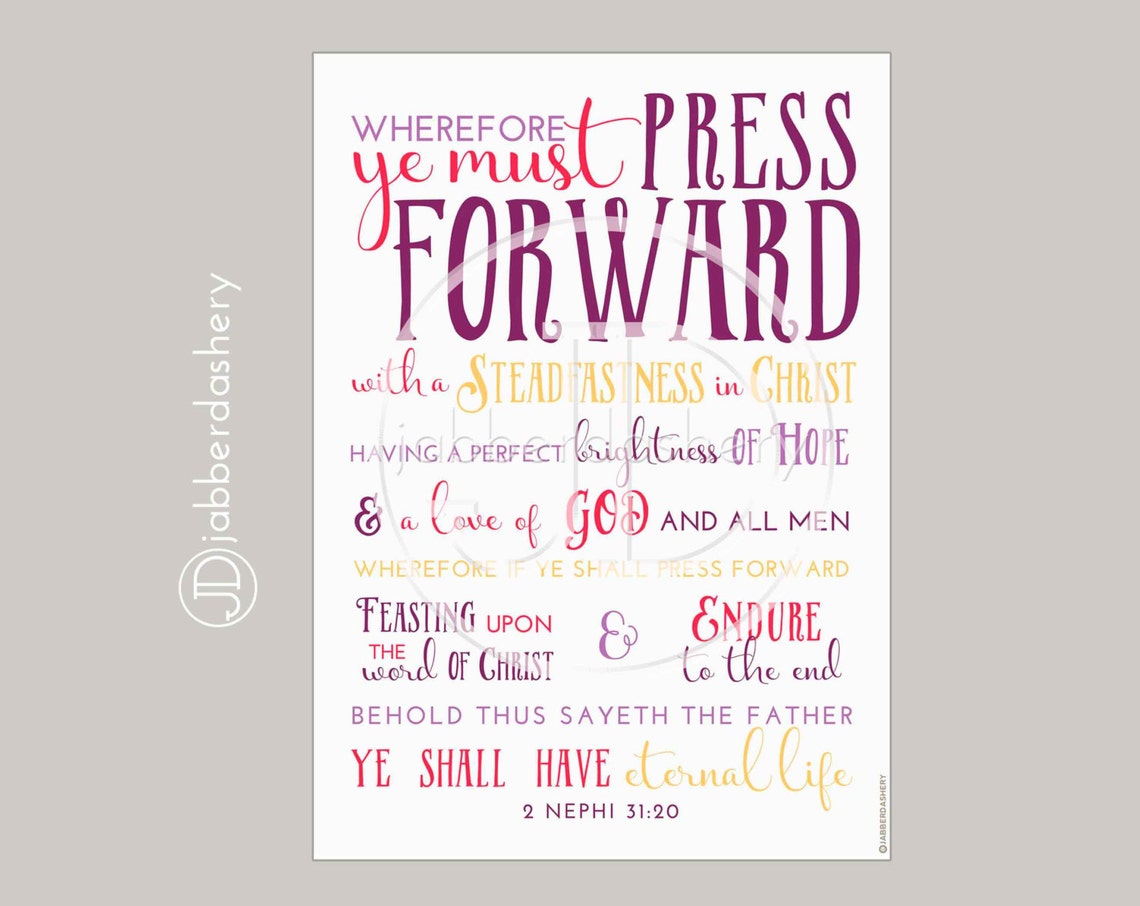 WHEREFORE
ye must PRESS
FORWARD
with a STEADFASTNESS in CHRIST
HAVING A PERFECT brightness OF HOPE
& a love of GOD AND ALL MEN
WHEREFORE IF YE SHALL PRESS FORWARD
FEASTING UPON
THE
word OF CHRIST
&
ENDURE
to the end
BEHOLD THUS SAYETH THE FATHER
YE SHALL HAVE eternal life
2 NEPHI 31:20
©JABBERDASHERY
JD jabberdashery
JD
jabberdashery